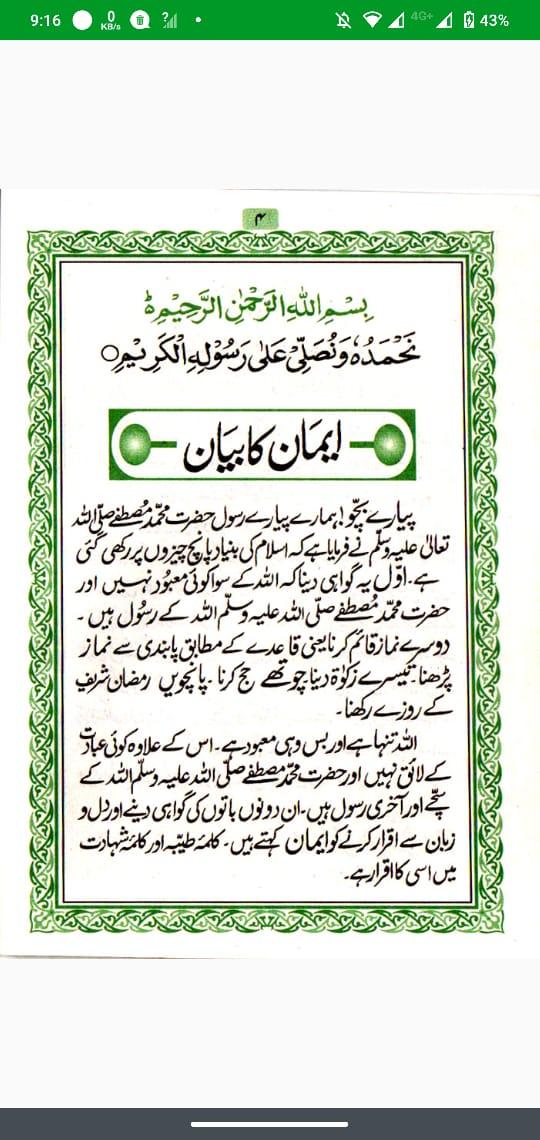 9:16
0
KB/s
?
4G+
43%
۴
بِسْمِ اللهِ الرَّحْمٰنِ الرَّحِيْمِ ط
نَحْمَدُهٗ وَنُصَلِّیْ عَلٰی رَسُوْلِهِ الْكَرِيْمِ ○
ایمَان کا بیَان
پیارے بچّو! ہمارے پیارے رسول حضرت محمّد مُصطفےٰ صلّی اللہ
تعالیٰ علیہ وسلّم نے فرمایا ہے کہ اسلام کی بنیاد پانچ چیزوں پر رکھی گئی
ہے۔ اوّل یہ گواہی دینا کہ اللہ کے سوا کوئی معبُود نہیں اور
حضرت محمّد مُصطفےٰ صلّی اللہ علیہ وسلّم اللہ کے رسُول ہیں۔
دوسرے نماز قائم کرنا یعنی قاعدے کے مطابق پابندی سے نماز
پڑھنا۔ تیسرے زکوٰۃ دینا چوتھے حج کرنا۔ پانچویں رمضان شریف
کے روزے رکھنا۔
اللہ تنہا ہے اور بس وہی معبود ہے۔ اس کے علاوہ کوئی عبادت
کے لائق نہیں اور حضرت محمّد مصطفےٰ صلّی اللہ علیہ وسلّم اللہ کے
سچّے اور آخری رسول ہیں۔ ان دونوں باتوں کی گواہی دینے اور دل و
زبان سے اقرار کرنے کو ایمان کہتے ہیں۔ کلمۂ طیّبہ اور کلمۂ شہادت
میں اسی کا اقرار ہے۔